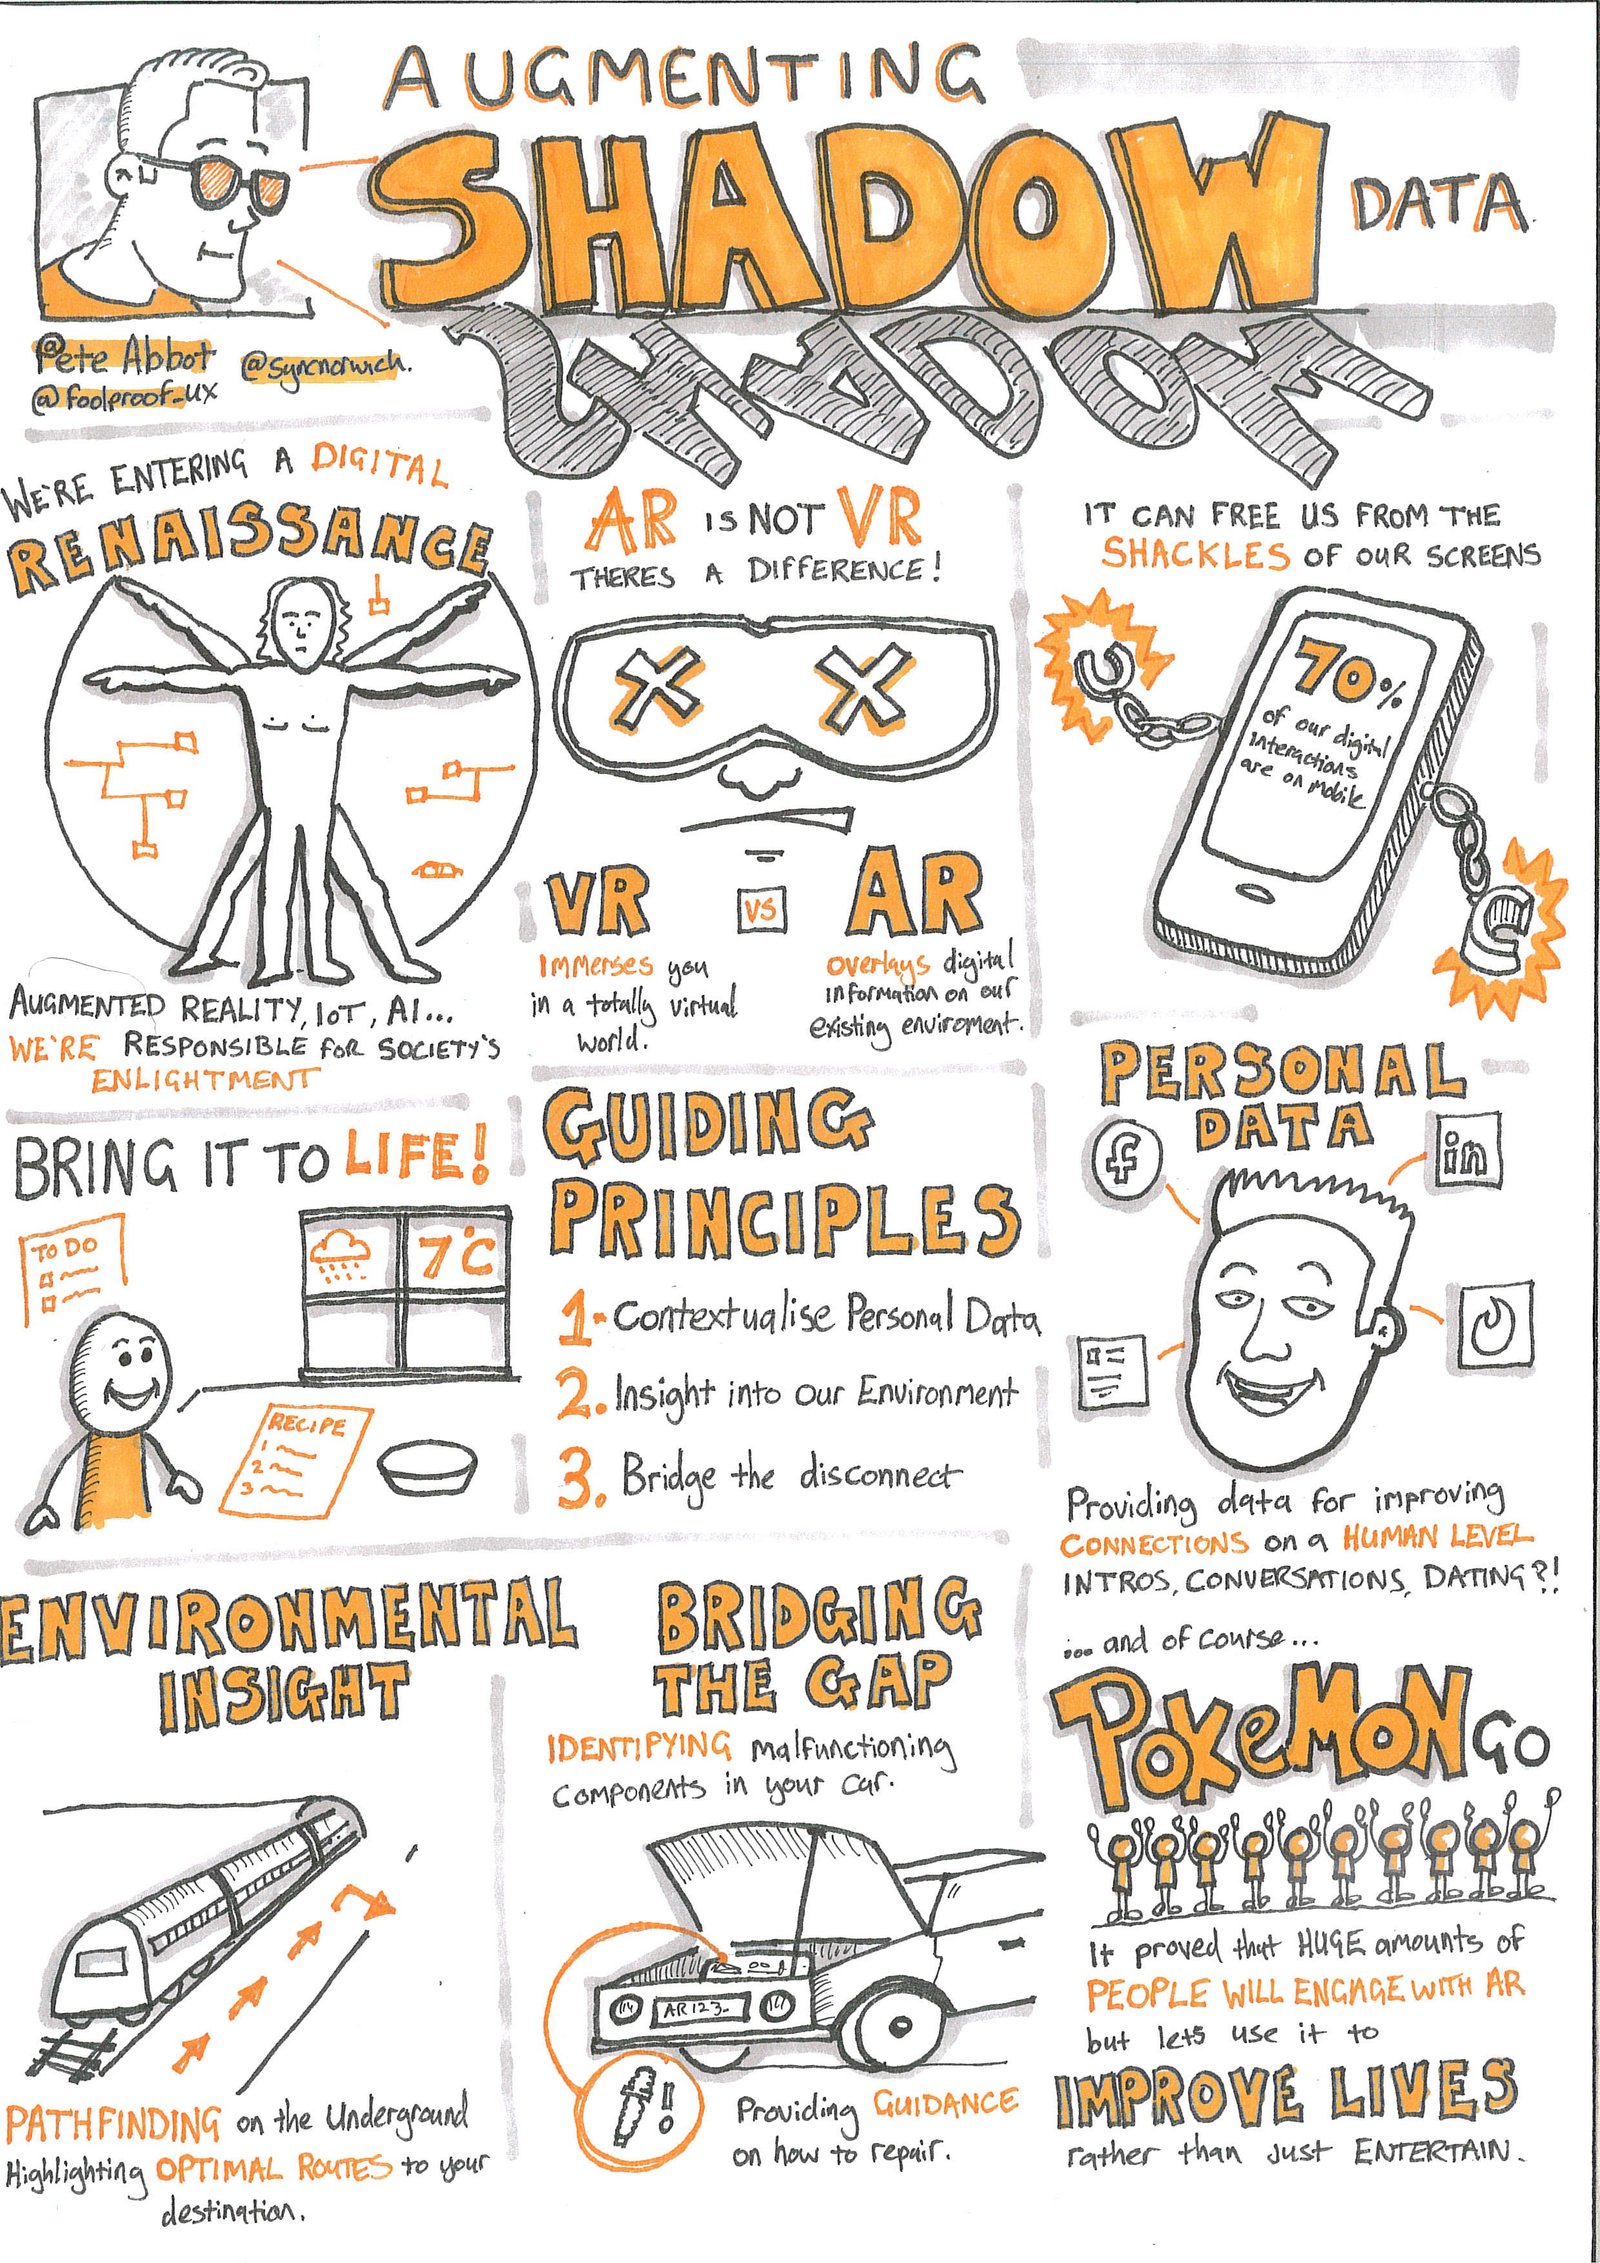 AUGMENTING
SHADOW
DATA
@Pete Abbot
@syncnorwich.
@foolproof_ux
WE'RE ENTERING A DIGITAL
RENAISSANCE
AUGMENTED REALITY, IoT, AI...
WE'RE RESPONSIBLE FOR SOCIETY'S
ENLIGHTMENT
AR IS NOT VR
THERES A DIFFERENCE!
VR
VS
AR
IMMERSES you
in a totally virtual
world.
OVERLAYS digital
information on our
existing enviroment.
IT CAN FREE US FROM THE
SHACKLES OF OUR SCREENS
70%
of our digital
interactions
are on mobile
BRING IT TO LIFE!
TO DO
7°C
RECIPE
1
2
3
GUIDING
PRINCIPLES
1- Contextualise Personal Data
2. Insight into our Environment
3. Bridge the disconnect
PERSONAL
DATA
f
in
Providing data for improving
CONNECTIONS on a HUMAN LEVEL
INTROS, CONVERSATIONS, DATING?!
ENVIRONMENTAL
INSIGHT
PATHFINDING on the Underground
Highlighting OPTIMAL ROUTES to your
destination.
BRIDGING
THE GAP
IDENTIFYING malfunctioning
components in your car.
AR123-
!
Providing GUIDANCE
on how to repair.
... and of course...
POKEMON GO
It proved that HUGE amounts of
PEOPLE WILL ENGAGE WITH AR
but lets use it to
IMPROVE LIVES
rather than just ENTERTAIN.